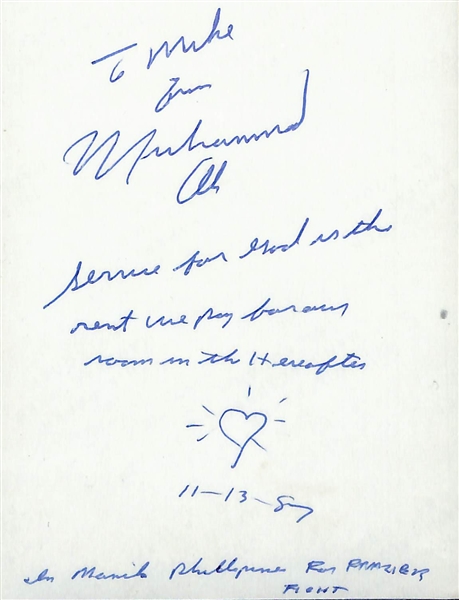 To Mike
From
Muhammad
Ali
Service for God is the
rent we pay for our
room in the Hereafter
11-13-89
In Manila Phillipine For FRAZIER
FIGHT